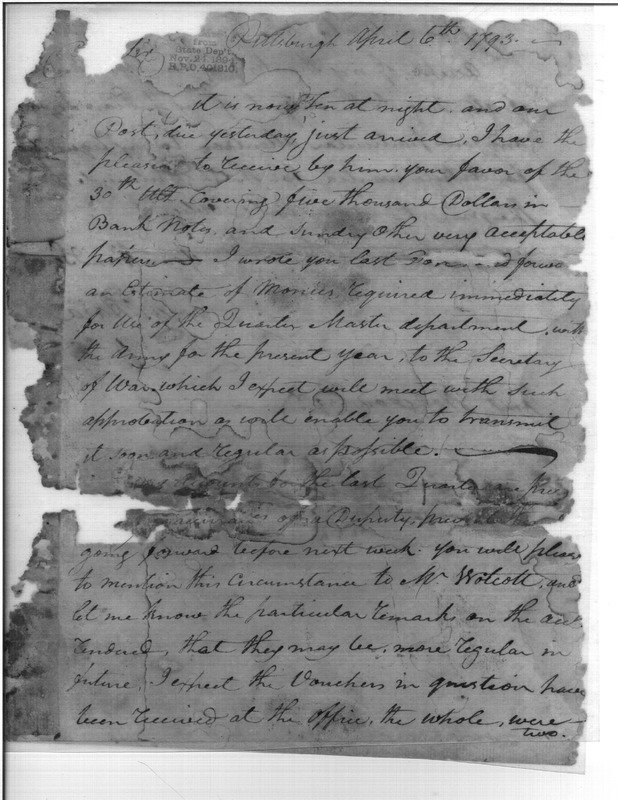 Pittsburgh April 6th 1793.
Sir
from
State Dep't.
Nov. 24 1894
R.P.D. 401810.
It is now ten at night, and our
Post, due yesterday, just arrived, I have the
pleasure to receive by him, your favor of the
30th Ult. Covering five thousand Dollars in
Bank Notes, and Sundry Other very acceptable
papers I wrote you last
an Estimate of Monies required immediately
for Use of the Quarter Master department, with
the Army for the present year, to the Secretary
of War, which I expect will meet with such
approbation as will enable you to transmit
it soon and regular as possible.
accounts for the last Quarter
of a Deputy, prevent
going forward before next week. you will please
to mention this Circumstance to Mr Wolcott, and
let me know the particular remarks on the acct
rendered, that they may be, more regular in
future, I expect the Vouchers in question have
been received at the office, the whole, were
two.